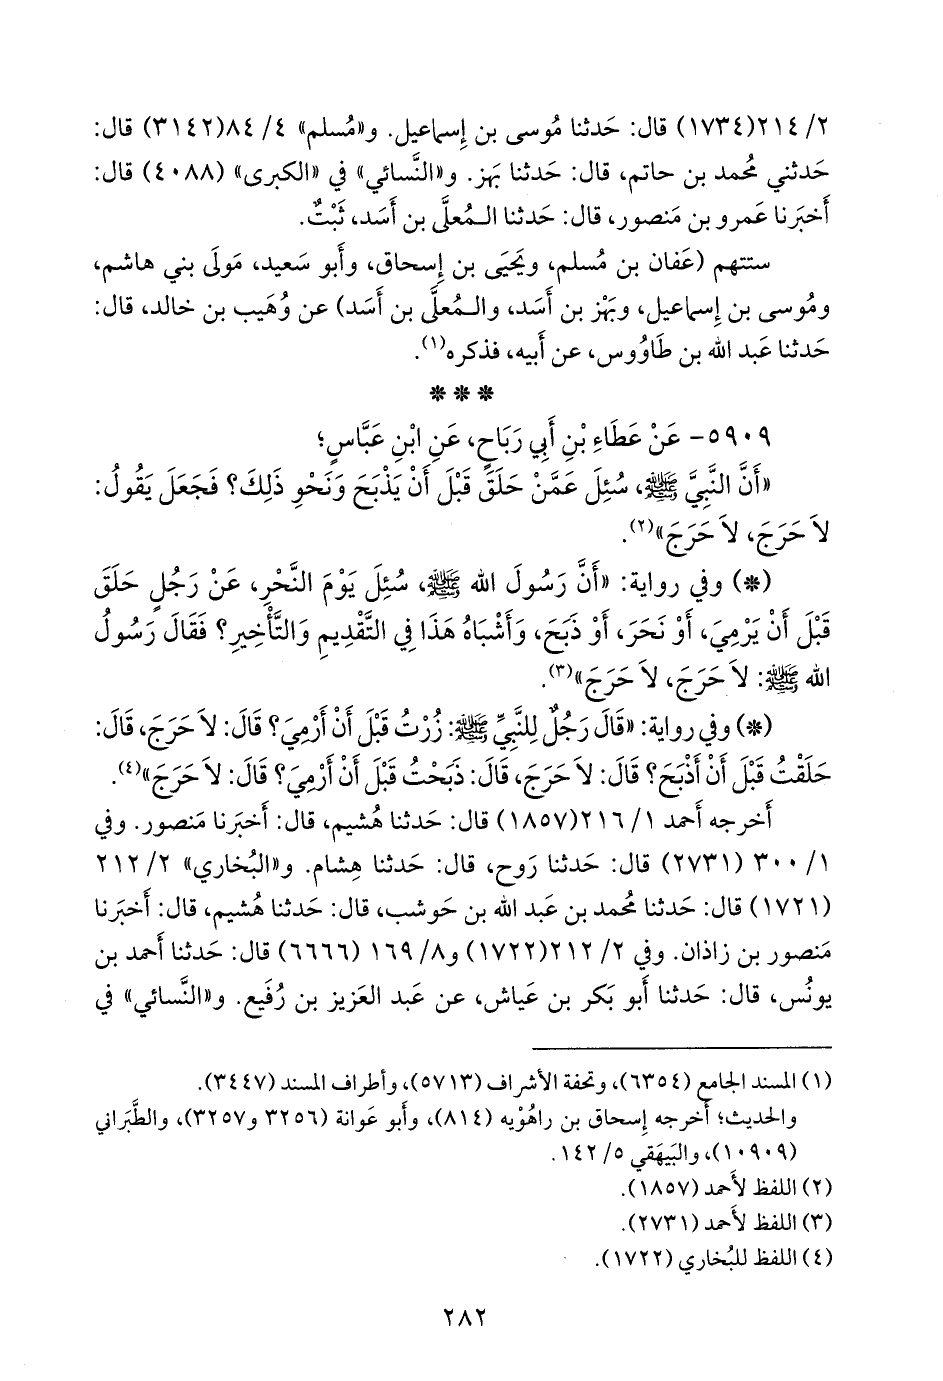 ٢/ ٢١٤(١٧٣٤) قال: حَدثنا مُوسى بن إِسماعيل. و«مُسلم» ٤/ ٨٤(٣١٤٢) قال:
حَدثني مُحمد بن حاتم، قال: حَدثنا بَهز. و«النَّسائي» في «الكبرى» (٤٠٨٨) قال:
أَخبَرنا عَمرو بن مَنصور، قال: حَدثنا الـمُعلَّى بن أَسَد، ثَبْتٌ.
ستتهم (عَفان بن مُسلم، ويَحيَى بن إِسحاق، وأَبو سَعيد، مَولَى بني هاشم،
ومُوسى بن إِسماعيل، وبَهْز بن أَسَد، والـمُعلَّى بن أَسَد) عن وُهَيب بن خالد، قال:
حَدثنا عَبد الله بن طَاوُوس، عن أَبيه، فذكره(١).
* * *
٥٩٠٩- عَنْ عَطَاءِ بْنِ أَبِي رَبَاحٍ، عَنِ ابْنِ عَبَّاسٍ؛
«أَنَّ النَّبِيَّ ﷺ، سُئِلَ عَمَّنْ حَلَقَ قَبْلَ أَنْ يَذْبَحَ وَنَحْوِ ذَلِكَ؟ فَجَعَلَ يَقُولُ:
لاَ حَرَجَ، لاَ حَرَجَ»(٢).
(*) وفي رواية: «أَنَّ رَسُولَ الله ﷺ، سُئِلَ يَوْمَ النَّحْرِ، عَنْ رَجُلٍ حَلَقَ
قَبْلَ أَنْ يَرْمِيَ، أَوْ نَحَرَ، أَوْ ذَبَحَ، وَأَشْبَاهُ هَذَا فِي التَّقْدِيمِ وَالتَّأْخِيرِ؟ فَقَالَ رَسُولُ
الله ﷺ: لاَ حَرَجَ، لاَ حَرَجَ»(٣).
(*) وفي رواية: «قَالَ رَجُلٌ لِلنَّبِيِّ ﷺ: زُرْتُ قَبْلَ أَنْ أَرْمِيَ؟ قَالَ: لاَ حَرَجَ، قَالَ:
حَلَقْتُ قَبْلَ أَنْ أَذْبَحَ؟ قَالَ: لاَ حَرَجَ، قَالَ: ذَبَحْتُ قَبْلَ أَنْ أَرْمِيَ؟ قَالَ: لاَ حَرَجَ»(٤).
أَخرجه أَحمد ١/ ٢١٦(١٨٥٧) قال: حَدثنا هُشيم، قال: أَخبَرنا مَنصور. وفي
١/ ٣٠٠ (٢٧٣١) قال: حَدثنا رَوح، قال: حَدثنا هِشام. و«البُخاري» ٢/ ٢١٢
(١٧٢١) قال: حَدثنا مُحمد بن عَبد الله بن حَوشب، قال: حَدثنا هُشيم، قال: أَخبَرنا
مَنصور بن زاذان. وفي ٢/ ٢١٢(١٧٢٢) و٨/ ١٦٩ (٦٦٦٦) قال: حَدثنا أَحمد بن
يونُس، قال: حَدثنا أَبو بَكر بن عَياش، عن عَبد العَزيز بن رُفَيع. و«النَّسائي» في
(١) المسند الجامع (٦٣٥٤)، وتحفة الأشراف (٥٧١٣)، وأطراف المسند (٣٤٤٧).
والحديث؛ أَخرجه إِسحاق بن راهُوْيه (٨١٤)، وأَبو عَوانة (٣٢٥٦ و٣٢٥٧)، والطَّبَراني
(١٠٩٠٩)، والبَيهَقي ٥/ ١٤٢.
(٢) اللفظ لأَحمد (١٨٥٧).
(٣) اللفظ لأَحمد (٢٧٣١).
(٤) اللفظ للبُخاري (١٧٢٢).
٢٨٢